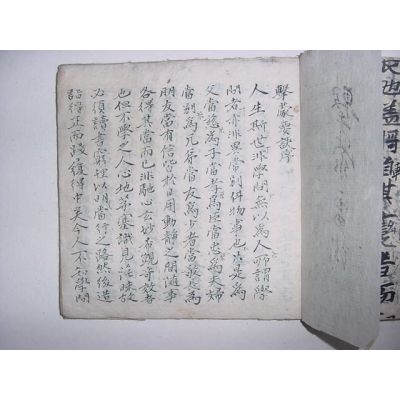 擊蒙要訣序
人生斯世非學問無以爲人所謂學
問者亦非異常別件物事也只是爲
父當慈爲子當孝爲臣當忠爲夫婦
當別爲兄弟當友爲少者當敬長爲
朋友當有信皆於日用動靜之間隨事
各得其當而已非馳心玄妙希覬奇效者
也但不學之人心地茅塞識見茫昧故
必須讀書窮理以明當行之路然後造
詣得正而踐履得中矣今人不知學問